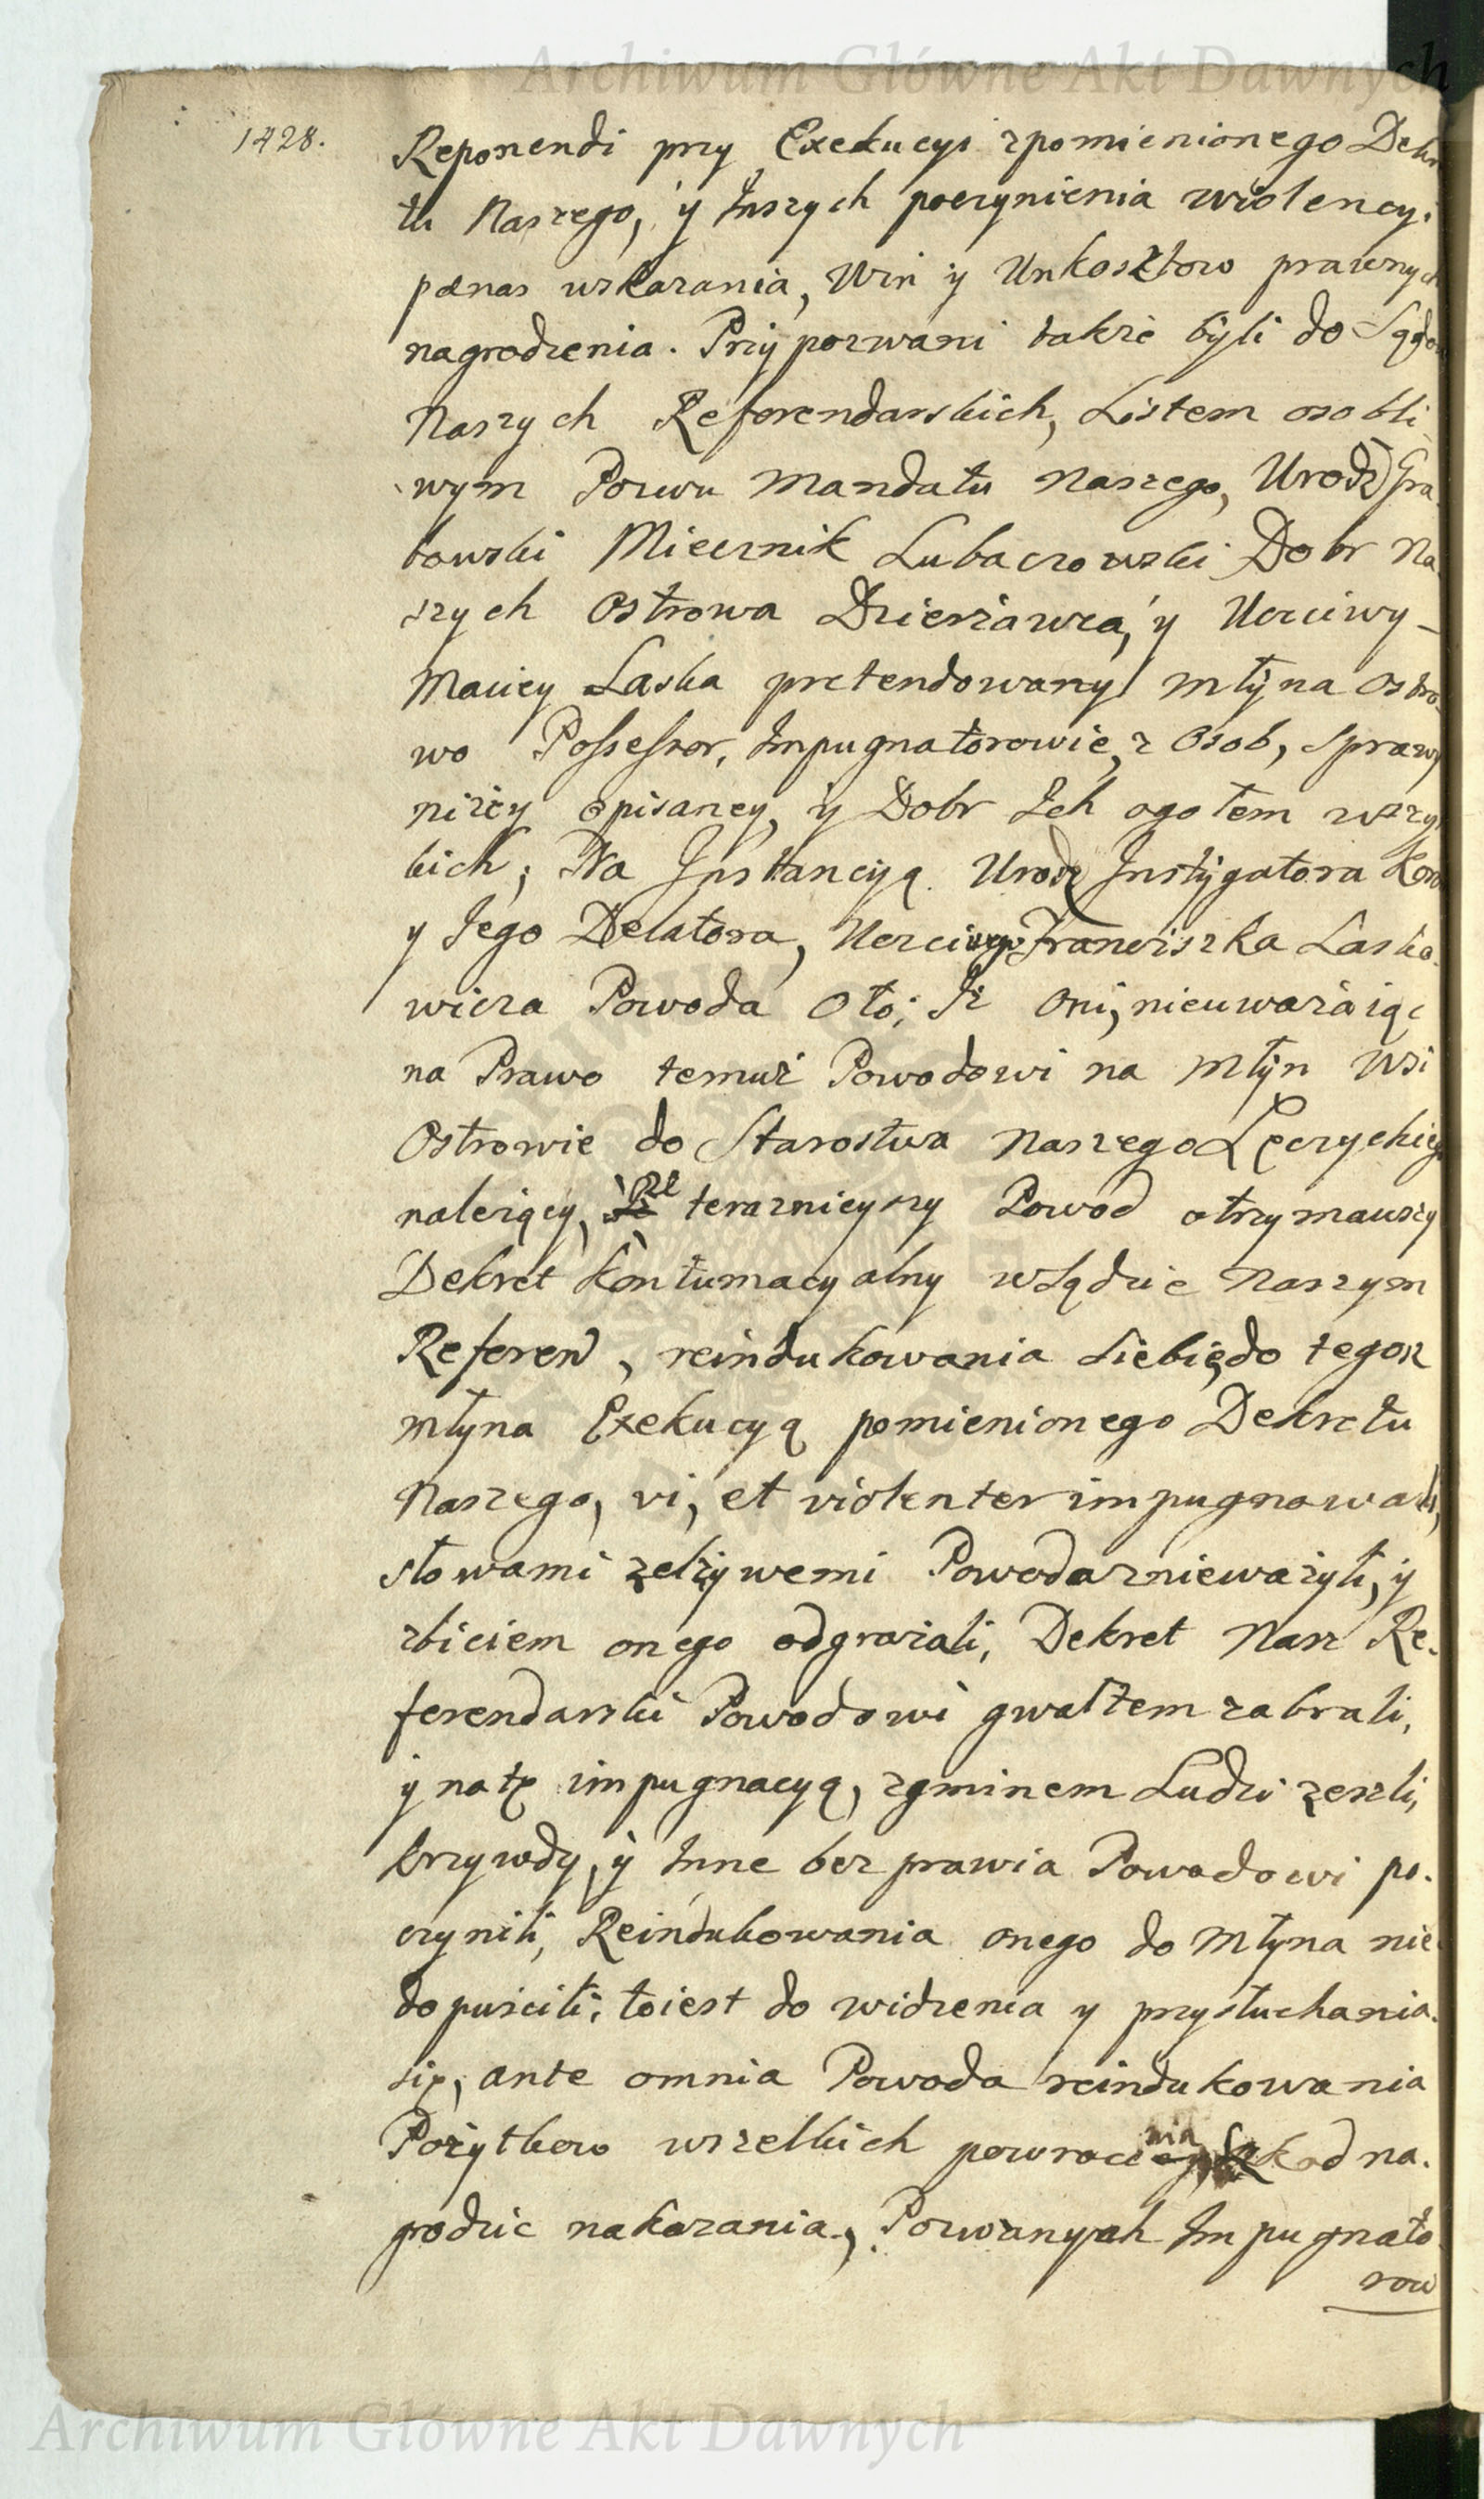 Archiwum Główne Akt Dawnych
1428.
Reponendi przy Exekucyi zpomienionego Dekre
tu Naszego, y Inszych poczynienia violencyi
pænas wskazania, Win y Unkosztow prawnych
nagrodzenia. Przypozwani także byli do Sądow
Naszych Referendarskich, Listem osobli
wym Pozwu Mandatu Naszego, Urodz Gra
bowski Miecznik Lubaczowski Dobr Na
szych Ostrowa Dzierżawca, y Uczciwy
Maciey Laska pretendowany młyna Ostro
wo Possessor, Impugnatorowie, z Osob, Sprawy
niżey opisaney, y Dobr Ich ogołem wszyt
kich; Na Instancyą Urodz Instygatora Koro
y Jego Delatora, Uczciwego Franciszka Laska
wicza Powoda Oto; Iż Oni, nieuważaiąc
na Prawo temuż Powodowi na Młyn Wsi
Ostrowie do Starostwa Naszego Łęczyckiego
należący, że teraznieyszy Powod otrzymawszy
Dekret Kontumacyalny w Sądzie Naszym
Referen, reindukowania Siebie do tegoż
młyna Exekucyą pomienionego Dekretu
Naszego, vi, et violenter impugnowali,
słowami zelżywemi Powoda znieważyli, y
zbiciem onego odgrażali, Dekret Nasz Re.
ferendarski Powodowi gwałtem zabrali,
y na tę impugnacyą, zgminem Ludzi zeszli,
krzywdy, y Inne bezprawia Powodowi po.
czynili, Reindukowania onego do Młyna nie
dopuścili; toiest do widzenia y przysłuchania
się, ante omnia Powoda reindukowania
Pożytkow wszelkich powroce nia Szkod na.
grodzic nakazania, Pozwanych Impugnato
row
Archiwum Główne Akt Dawnych